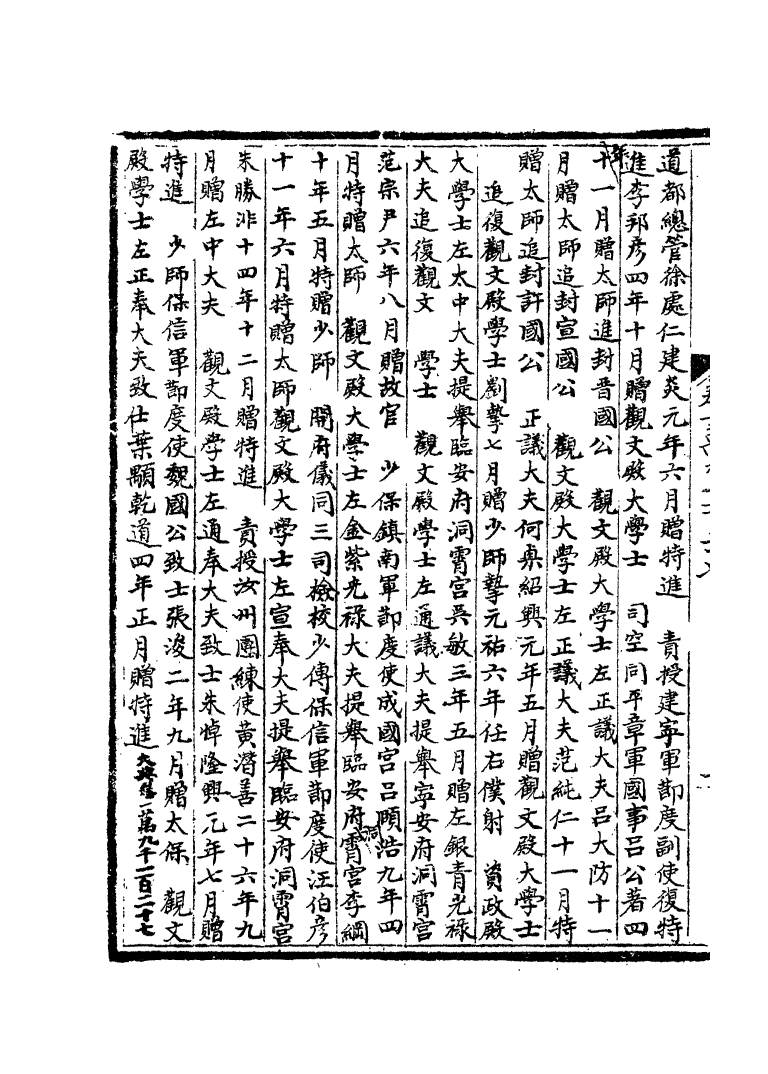 道都總管徐處仁建炎元年六月贈特進　責授建寜軍節度副使復特
進李邦彦四年十月贈觀文殿大學士　司空同平章軍國事吕公著四
年十一月贈太師進封晋國公　觀文殿大學士左正議大夫吕大防十一
月贈太師追封宣國公　觀文殿大學士左正議大夫范純仁十一月特
贈太師追封許國公　正議大夫何㮚紹興元年五月贈觀文殿大學士
追復觀文殿學士劉摯七月贈少師摯元祐六年任右僕射　資政殿
大學士左太中大夫提舉臨安府洞霄宫吴敏三年五月贈左銀青光禄
大夫追復觀文　學士　觀文殿學士左通議大夫提舉寜安府洞霄宫
范宗尹六年八月贈故官　少保鎮南軍節度使成國宫吕頤浩九年四
月特贈太師　觀文殿大學士左金紫光禄大夫提舉臨安府洞霄宫李綱
十年五月特贈少師　開府儀同三司檢校少傅保信軍節度使汪伯彦
十一年六月特贈太師觀文殿大學士左宣奉大夫提舉臨安府洞霄宫
朱勝非十四年十二月贈特進　責授汝州團練使黄潛善二十六年九
月贈左中大夫　觀文殿學士左通奉大夫致士朱倬隆興元年七月贈
特進　少師保信軍節度使魏國公致士張浚二年九月贈太保　觀文
殿學士左正奉大夫致仕葉顒乾道四年正月贈特進 一萬九千一百二十七